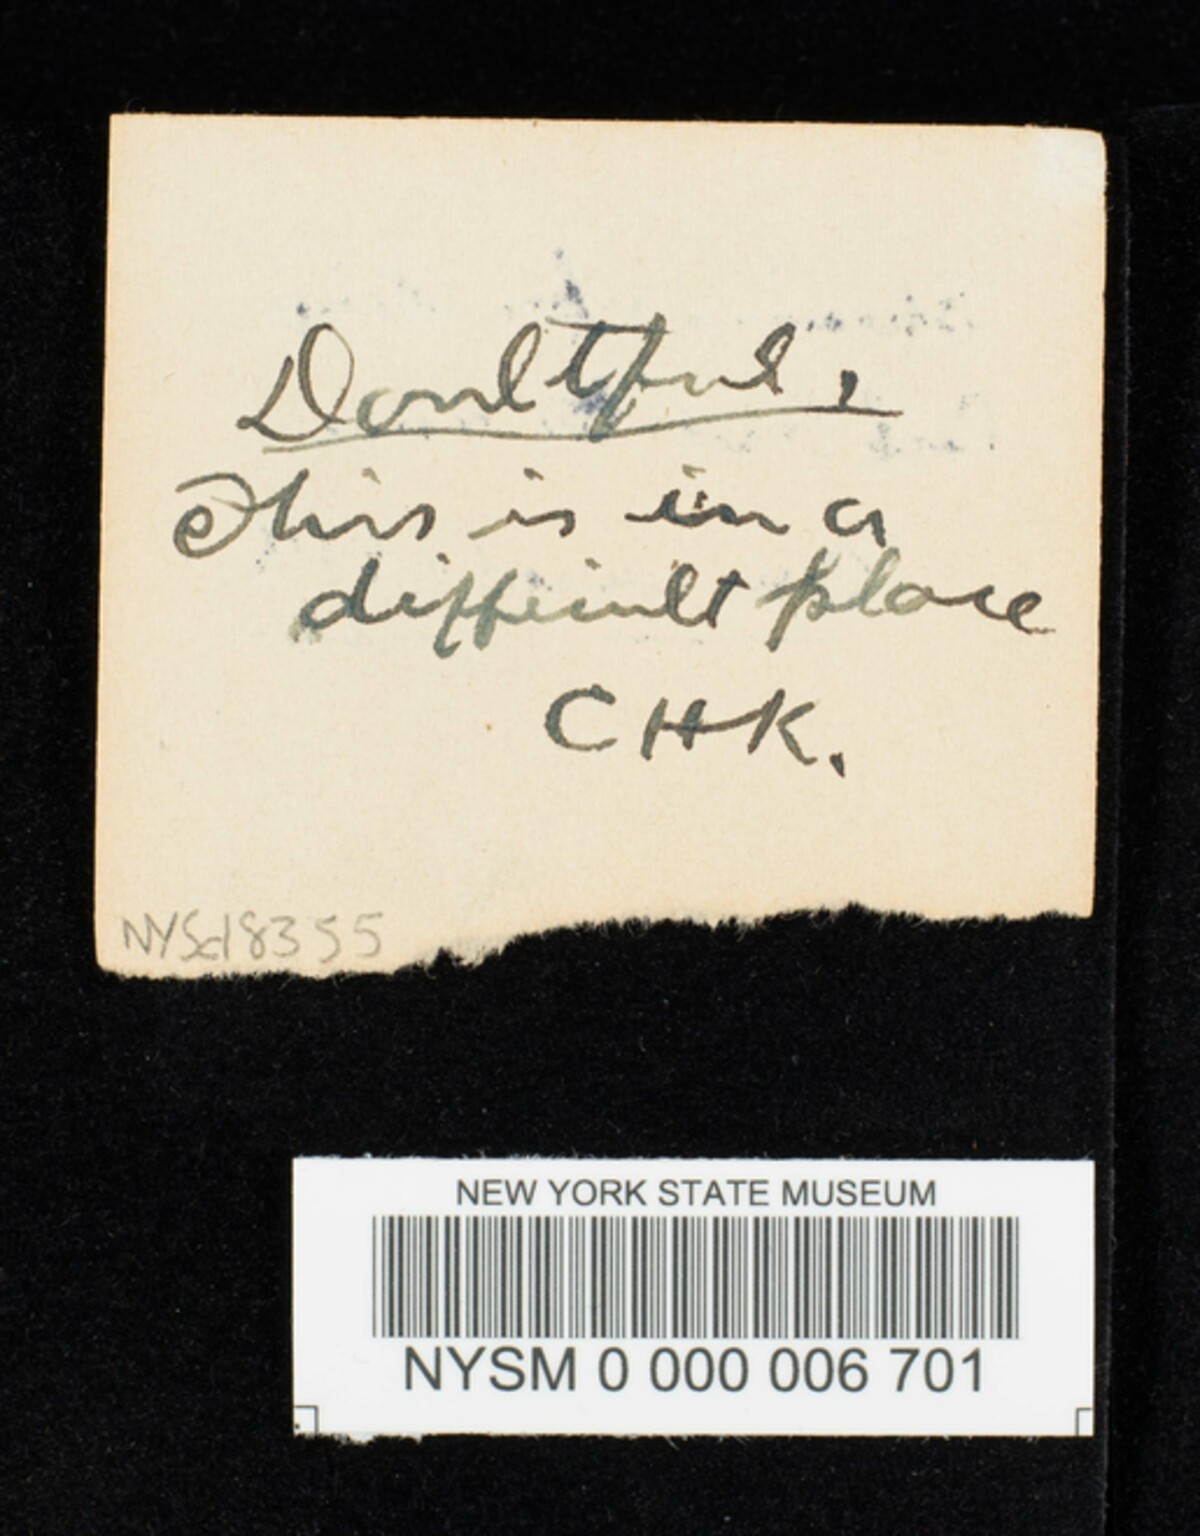 Doubtful.
This is in a
difficult place
CHK.
NYSd8355
NEW YORK STATE MUSEUM
NYSM 0 000 006 701